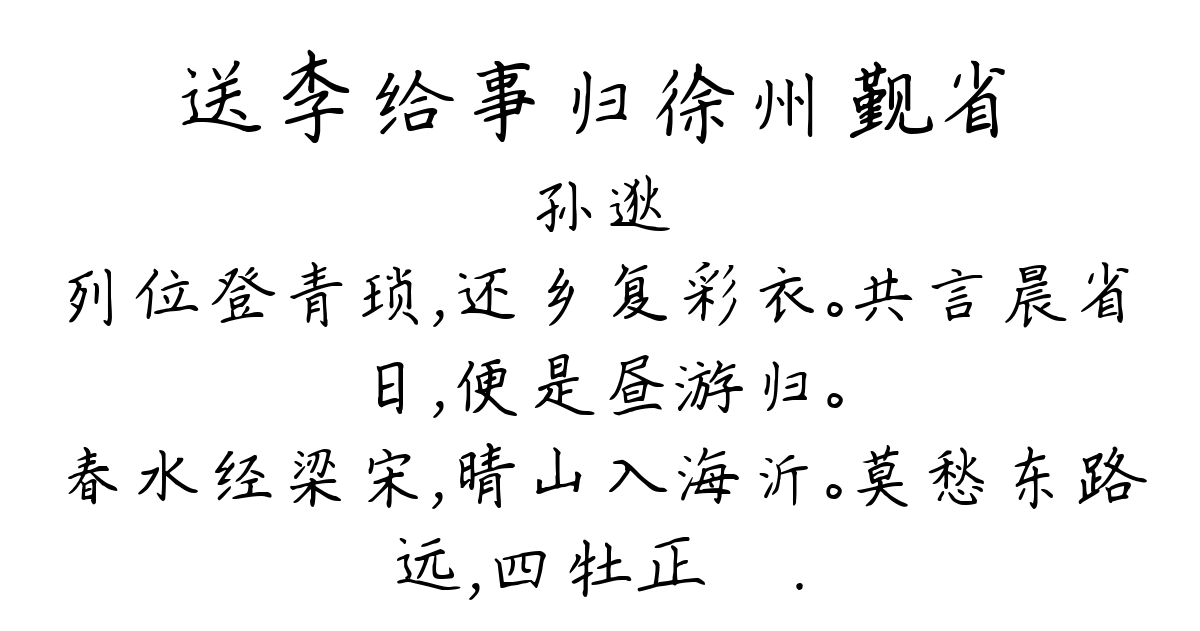 送李给事归徐州觐省
孙逖
列位登青琐,还乡复彩衣。共言晨省
日,便是昼游归。
春水经梁宋,晴山入海沂。莫愁东路
远,四牡正 .